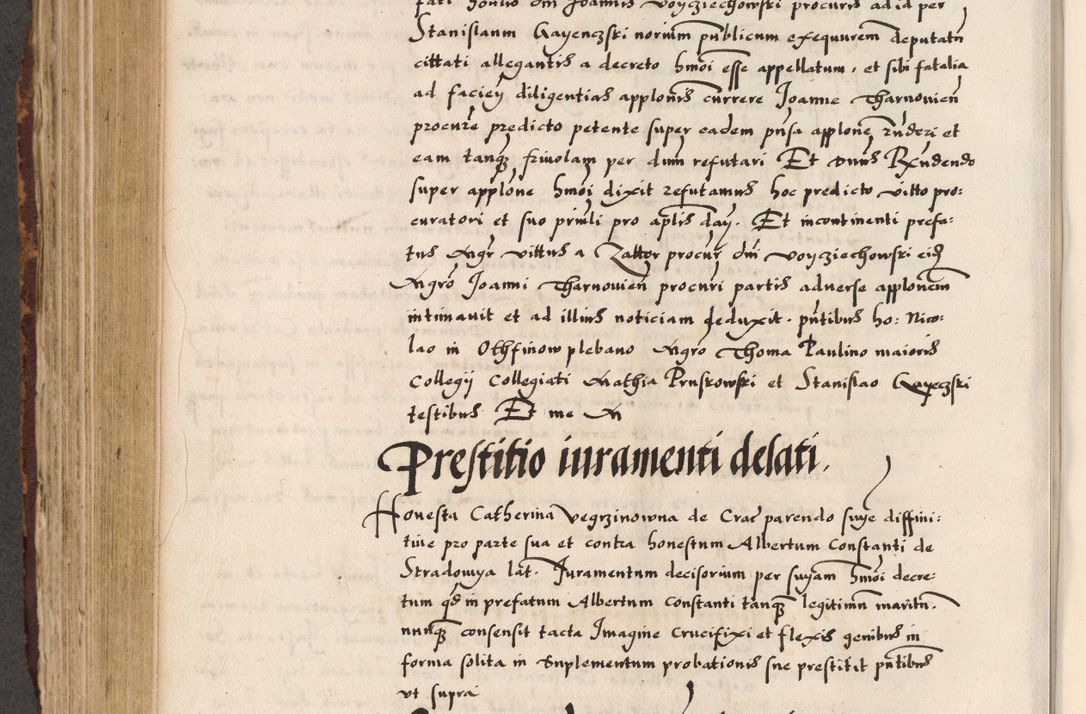 fati domini Joannis Voycziechowski procuris ad id per
Stanislaum Gayenczski norium publicum exequutem deputatu
cittati allegantis a decreto hmoi esse appellatum, et sibi fatalia
ad faciey diligentias applonis currere Joanne Tharnovien
procure predicto petente super eadem pnsa applone rnderi et
eam tanq frivolam per dum refutari Et Duns Rxndendo
super applone hmoi dixit refutamus hoc predicto vitto pro:
curatori et suo prinli pro aplis day. Et incontinenti prefa:
tus Mgr vittus a Zattor procur dni Voycziechowski eid
Mgro Joanni Tharnovien procuri partis adverse applonem
intimavit et ad illius noticiam deduxit. pntibus ho: Nico:
lao in Othfinow plebano Mgro Thoma Paulino maioris
Collegij Collegiati Mathia Pruskowski et Stanislao Gayeczski
testibus Et me M
Prestitio iuramenti delati.
Honesta Catherina Vegrzinowna de Crac parendo suye diffini:
tive pro parte sua et contra honestum Albertum Constanti de
Stradomya lat. Juramentum decisorium per suyam hmoi decre:
tum qd in prefatum Albertum Constanti tanq legitimu maritu.
nunq consensit tacta Imagine Crucifixi et flexis genibus in
forma solita in suplementum probationis sue prestitit pntibus
ut supra